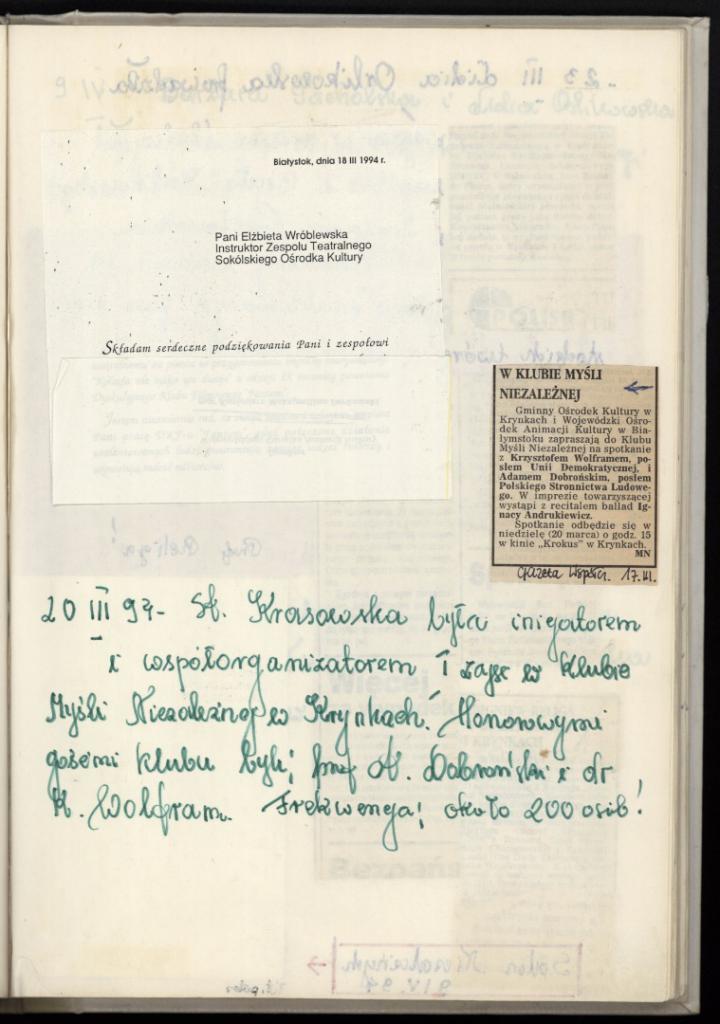 Białystok, dnia 18 III 1994 r.
Pani Elżbieta Wróblewska
Instruktor Zespołu Teatralnego
Sokólskiego Ośrodka Kultury
Składam serdeczne podziękowania Pani i zespołowi
W KLUBIE MYŚLI
NIEZALEŻNEJ
Gminny Ośrodek Kultury w
Krynkach i Wojewódzki Ośro-
dek Animacji Kultury w Bia-
łymstoku zapraszają do Klubu
Myśli Niezależnej na spotkanie
z Krzysztofem Wolframem, po-
słem Unii Demokratycznej, i
Adamem Dobrońskim, posłem
Polskiego Stronnictwa Ludowe-
go. W imprezie towarzyszącej
wystąpi z recitalem ballad Ig-
nacy Andrukiewicz.
Spotkanie odbędzie się w
niedzielę (20 marca) o godz. 15
w kinie „Krokus" w Krynkach.
MN
Gazeta Współcz. 17.III.
20 III 94- St. Krasowska była inicjatorem
i współorganizatorem I zajęć w Klubie
Myśli Niezależnej w Krynkach. Honorowymi
gośćmi klubu byli: prof A. Dobroński i dr
K. Wolfram. Frekwencja: około 200 osób!